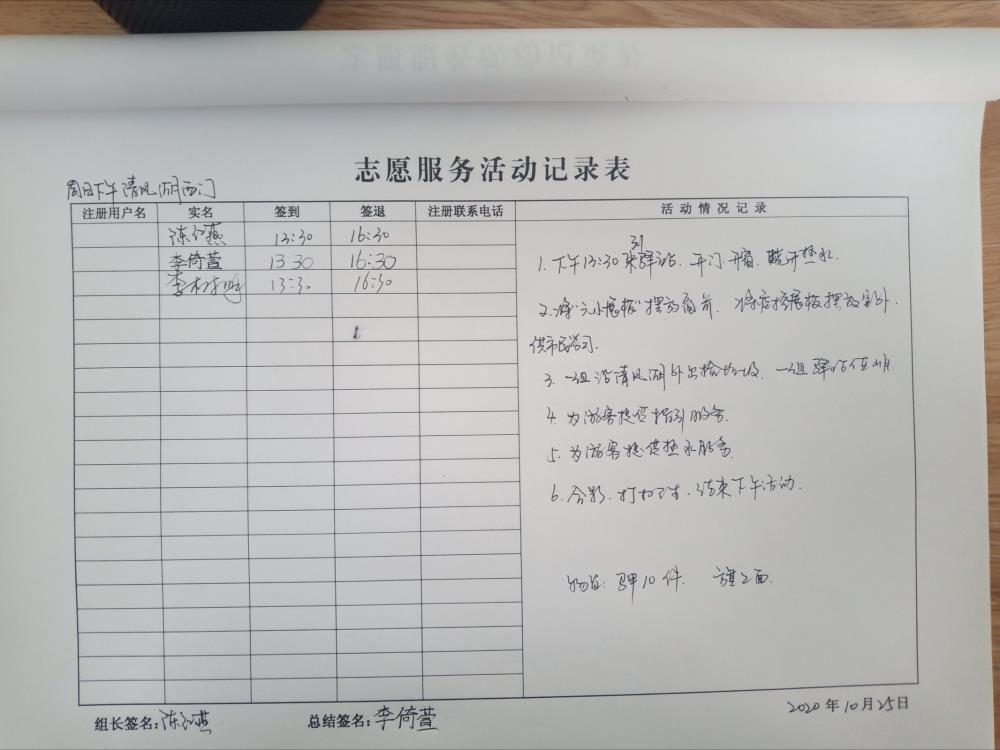 志愿服务活动记录表
周日下午清风湖西门
注册用户名 实名 签到 签退 注册联系电话 活动情况记录
陈红燕 13:30 16:30
李倚萱 13:30 16:30
李 13:30 16:30
1. 下午13:30来到驿站. 开门. 开窗. 烧开热水.
2. 将“ 展板”摆放窗前. 将 展板摆放室外.
供市民学习.
3. 一组沿清风湖外出捡垃圾. 一组驿站值班.
4. 为游客提供指引服务.
5. 为游客提供热水服务.
6. 合影. 打扫卫生. 结束下午活动.
物资: 马甲10件. 旗2面.
组长签名: 陈红燕 总结签名: 李倚萱
2020年10月25日